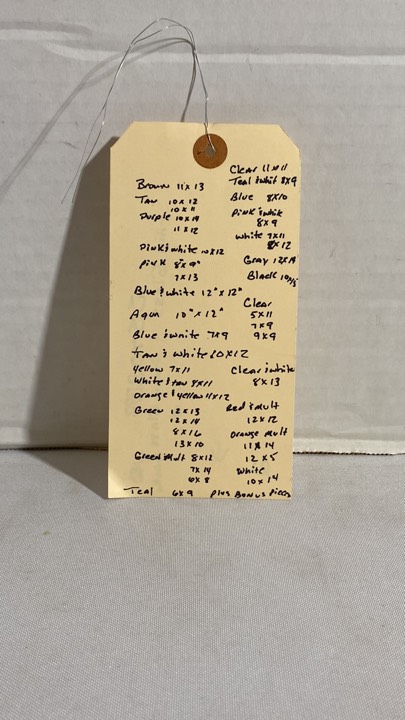 Clear 11x11
Brown 11x13 Teal & whit 8x9
Tan 10x12 Blue 8x10
10x11
Purple 10x14 Pink & whit
11x12 8x9
White 7x11
Pink & white 10x12 8x12
Pink 8"x9" Gray 12x14
7x13 Black
Blue & white 12"x12"
Clear
Aqua 10"x12" 5x11
7x9
Blue & white 7x9 9x9
Tan & White 10x12
Yellow 7x11 Clear & white
White & tan 8x11 8x13
Orange & yellow 11x12
Green 12x13 Red & Mult
12x14 12x12
8x16 Orange Mult
13x10 11x14
Green Mult 8x12 12x5
7x14 White
6x8 10x14
Teal 6x9 Plus Bonus Pieces